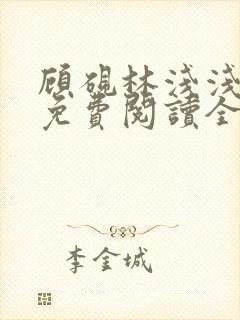 顧硯林淺淺
免費閱讀全
李金城